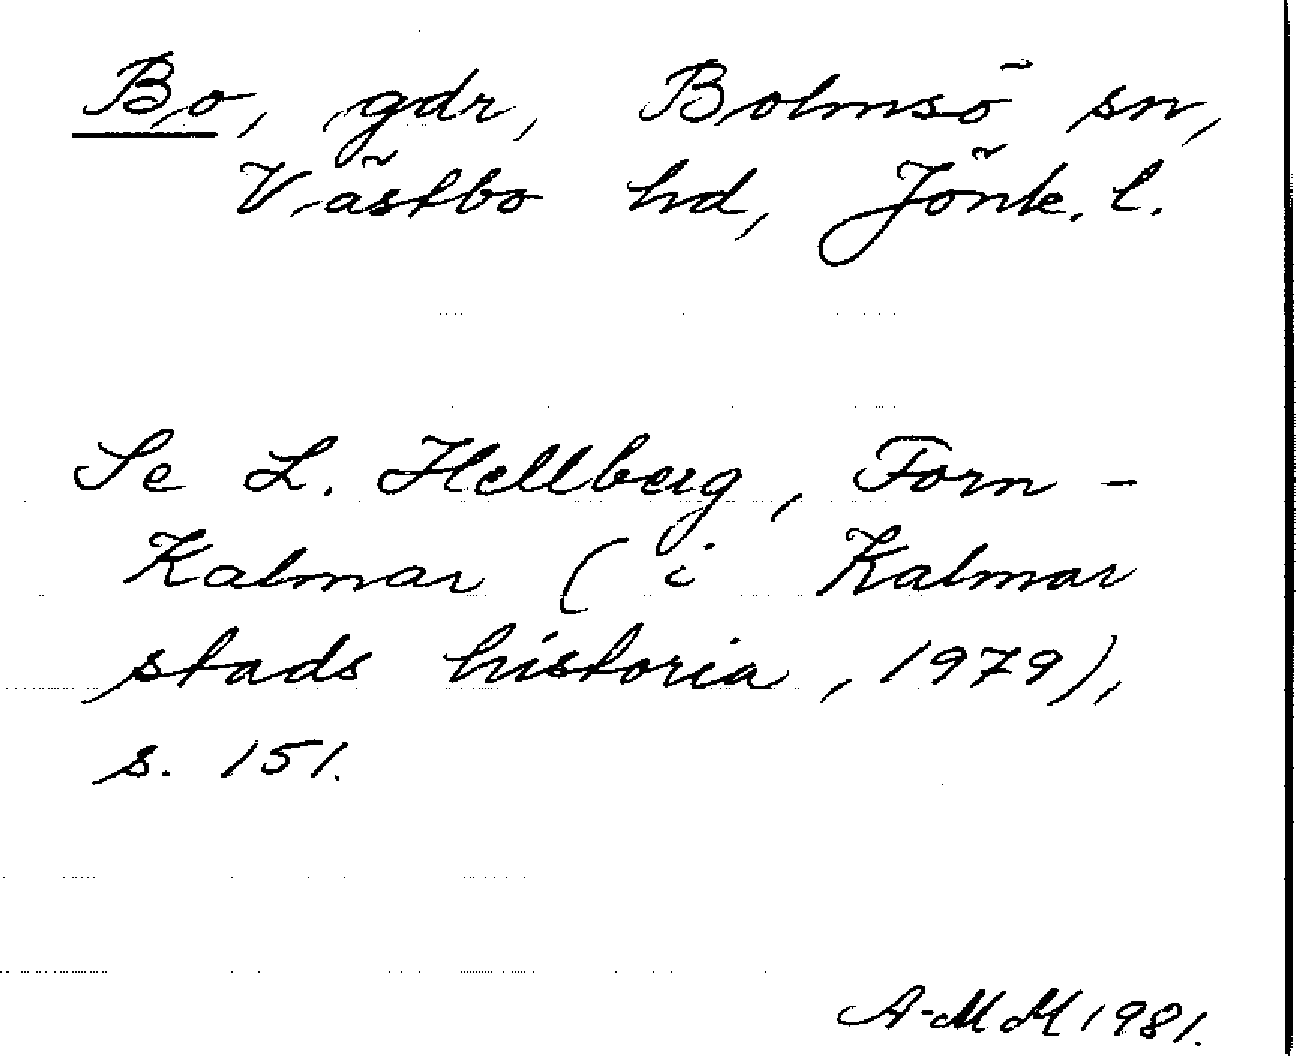 Bo, gdr, Bolmsö sn,
Västbo hd, Jönk. l.
Se L. Hellberg, Forn-
Kalmar (i Kalmar
stads historia, 1979),
s. 151.
A-MM 1981.